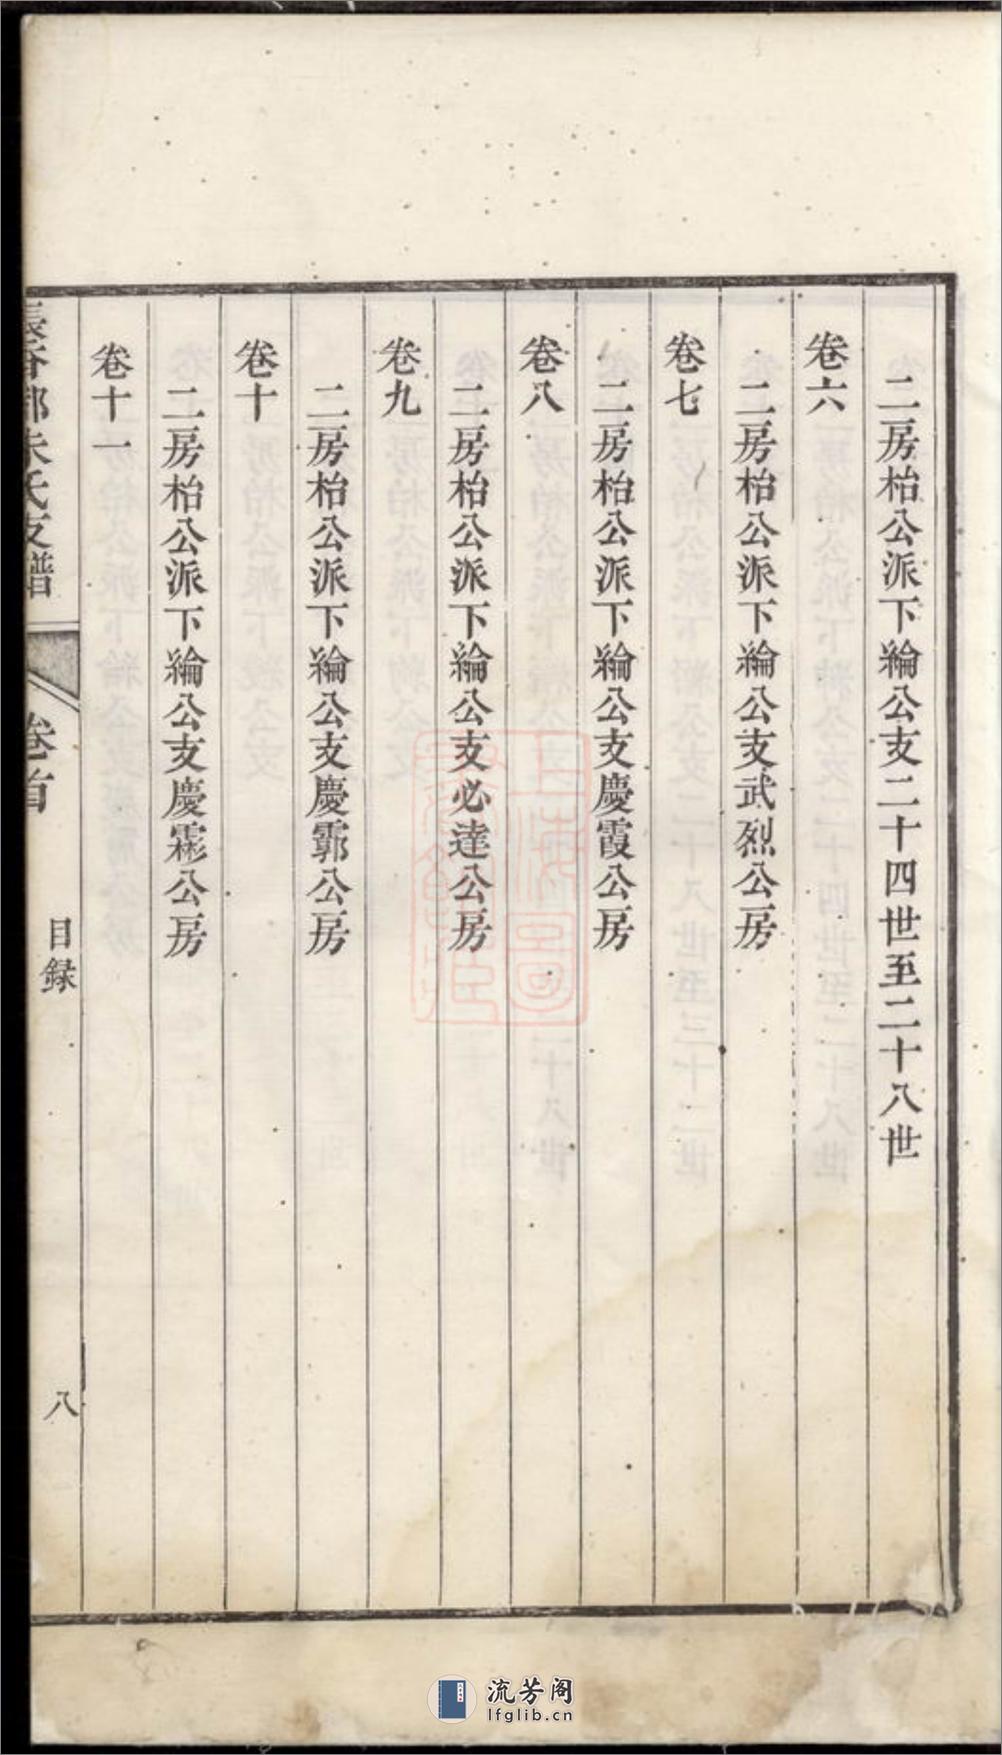 二房枱公派下綸公支二十四世至二十八世
卷六
二房枱公派下綸公支武烈公房
卷七
二房枱公派下綸公支慶霞公房
卷八
二房枱公派下綸公支必達公房
卷九
二房枱公派下綸公支慶霩公房
卷十
二房枱公派下綸公支慶霦公房
卷十一
朱氏支譜
卷首
目録
八
流芳阁
lfglib.cn